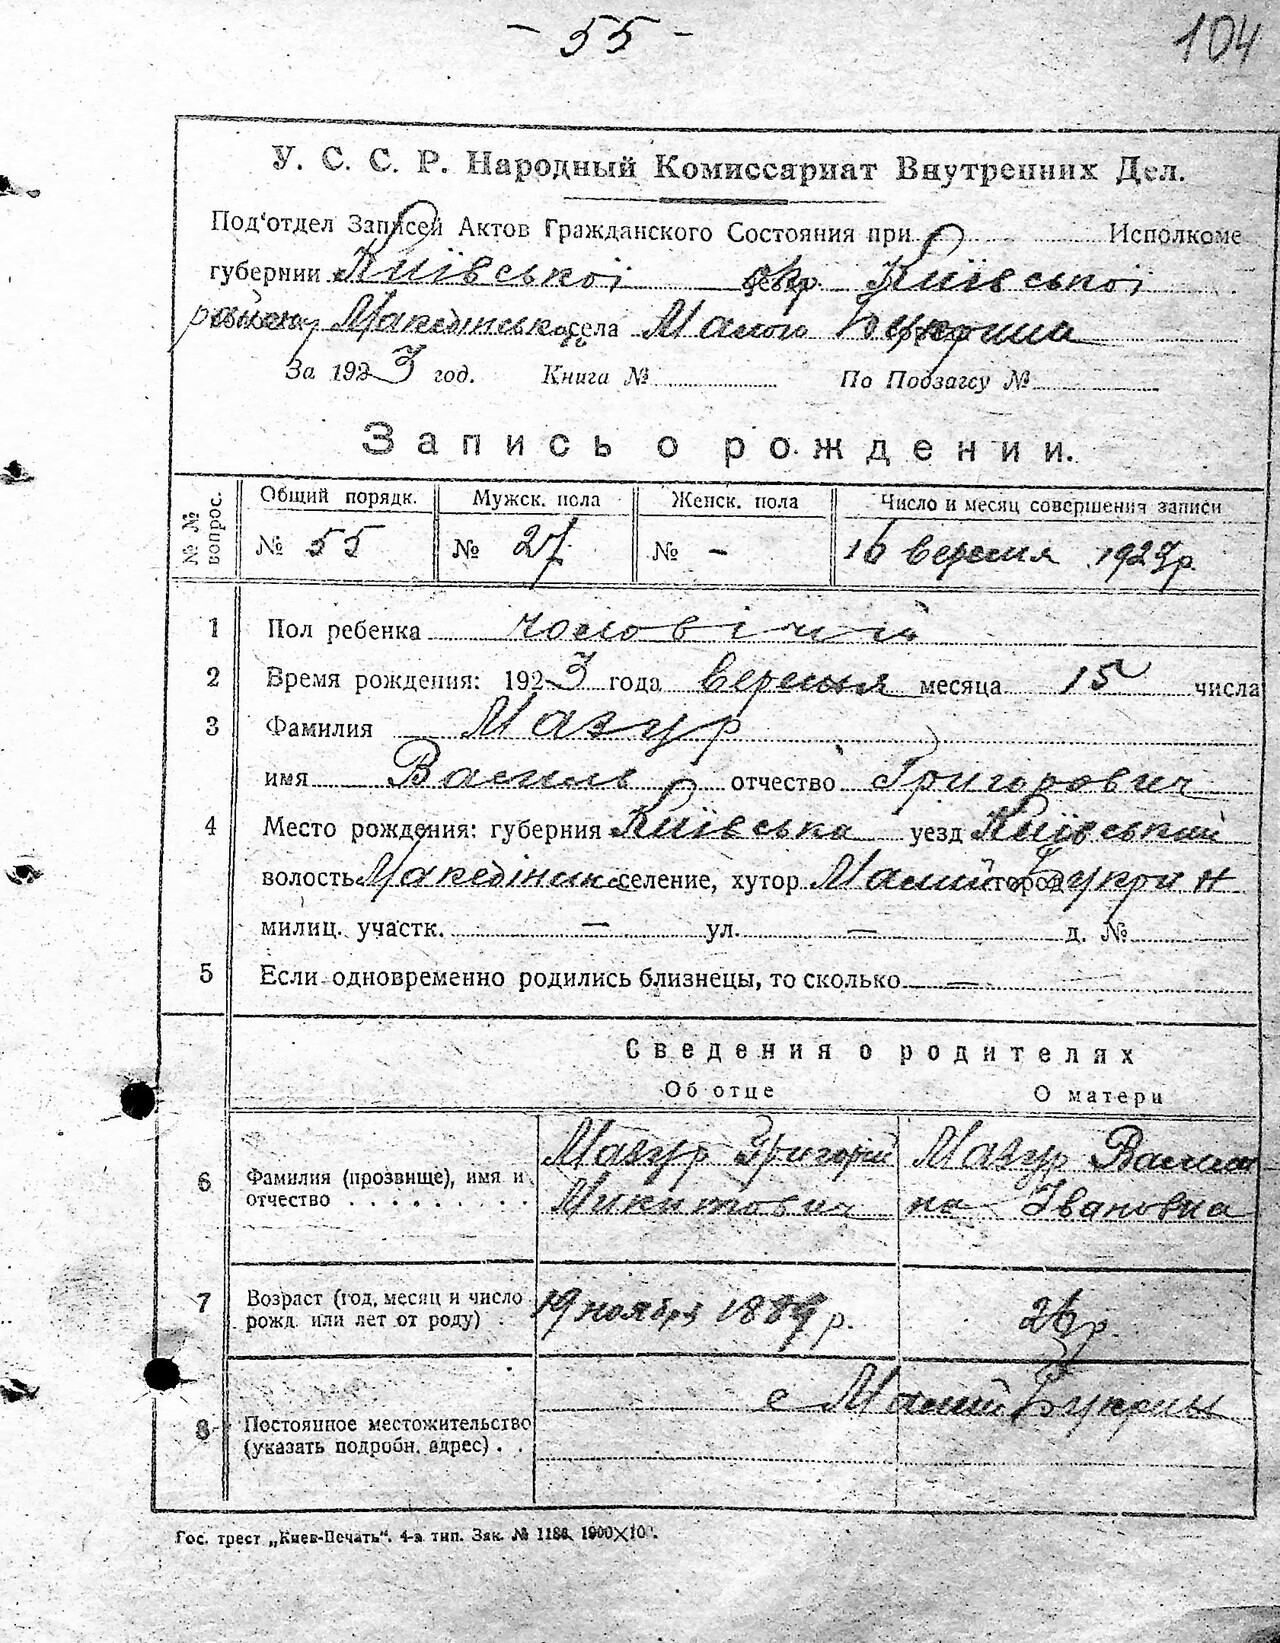 - 55 -
104
У. С. С. Р. Народный Комиссариат Внутренних Дел.
Под'отдел Записей Актов Гражданского Состояния при Исполкоме
губернии Київської окр. Київської
району Македонськ села Малого Букрина
За 1923 год. Книга № По Подзагсу №
Запись о рождении.
№ № вопрос.
Общий порядк. Мужск. пола Женск. пола Число и месяц совершения записи
№ 55 № 27 № - 16 вересня 1923 р.
1 Пол ребенка чоловічий
2 Время рождения: 1923 года вересня месяца 15 числа
3 Фамилия Мазур
имя Василь отчество Григорович
4 Место рождения: губерния Київська уезд Київський
волость селение, хутор Малий город Букрин
милиц. участк. — ул. — д. №
5 Если одновременно родились близнецы, то сколько —
Сведения о родителях
Об отце О матери
6 Фамилия (прозвище), имя и отчество Мазур Григорій Микитович Мазур Васили-
на Івановна
7 Возраст (год, месяц и число рожд. или лет от роду) 19 ноября 1889 р. 26 р.
8 Постоянное местожительство (указать подробн. адрес) с Малий Букрин
Гос. трест „Киев-Печать“. 4-а тип. Зак. № 1186